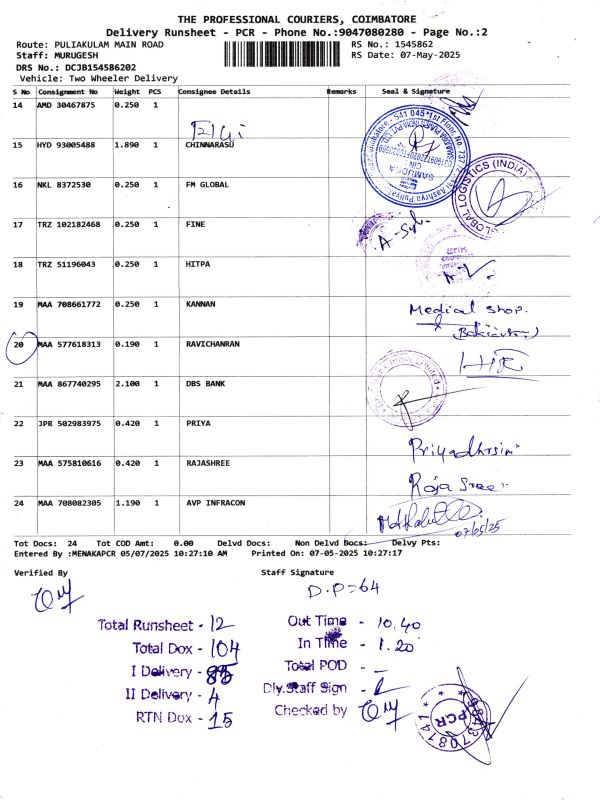 THE PROFESSIONAL COURIERS, COIMBATORE
Delivery Runsheet - PCR - Phone No.:9047080280 - Page No.:2
Route: PULIAKULAM MAIN ROAD
RS No.: 1545862
Staff: MURUGESH
RS Date: 07-May-2025
DRS No.: DCJB154586202
Vehicle: Two Wheeler Delivery
S No Consignment No Weight PCS Consignee Details Remarks Seal & Signature
14 AMD 30467875 0.250 1
15 HYD 93005488 1.890 1 CHINNARASU
16 NKL 8372530 0.250 1 FM GLOBAL
GLOBAL LOGISTICS (INDIA)
17 TRZ 102182468 0.250 1 FINE
18 TRZ 51196043 0.250 1 HITPA
19 MAA 708661772 0.250 1 KANNAN
Medical shop.
20 MAA 577618313 0.190 1 RAVICHANRAN
21 MAA 867740295 2.100 1 DBS BANK
22 JPR 502983975 0.420 1 PRIYA
Priyadhrsini
23 MAA 575810616 0.420 1 RAJASHREE
Roja Sree
24 MAA 708082305 1.190 1 AVP INFRACON
07/05/25
Tot Docs: 24 Tot COD Amt: 0.00 Delvd Docs: Non Delvd Docs: Delvy Pts:
Entered By :MENAKAPCR 05/07/2025 10:27:10 AM Printed On: 07-05-2025 10:27:17
Verified By
Staff Signature
D.P=64
Total Runsheet - 12
Out Time - 10.40
Total Dox - 104
In Time - 1.20
I Delivery - 85
Total POD - -
II Delivery - 4
Dly.Staff Sign -
RTN Dox - 15
Checked by
PCR